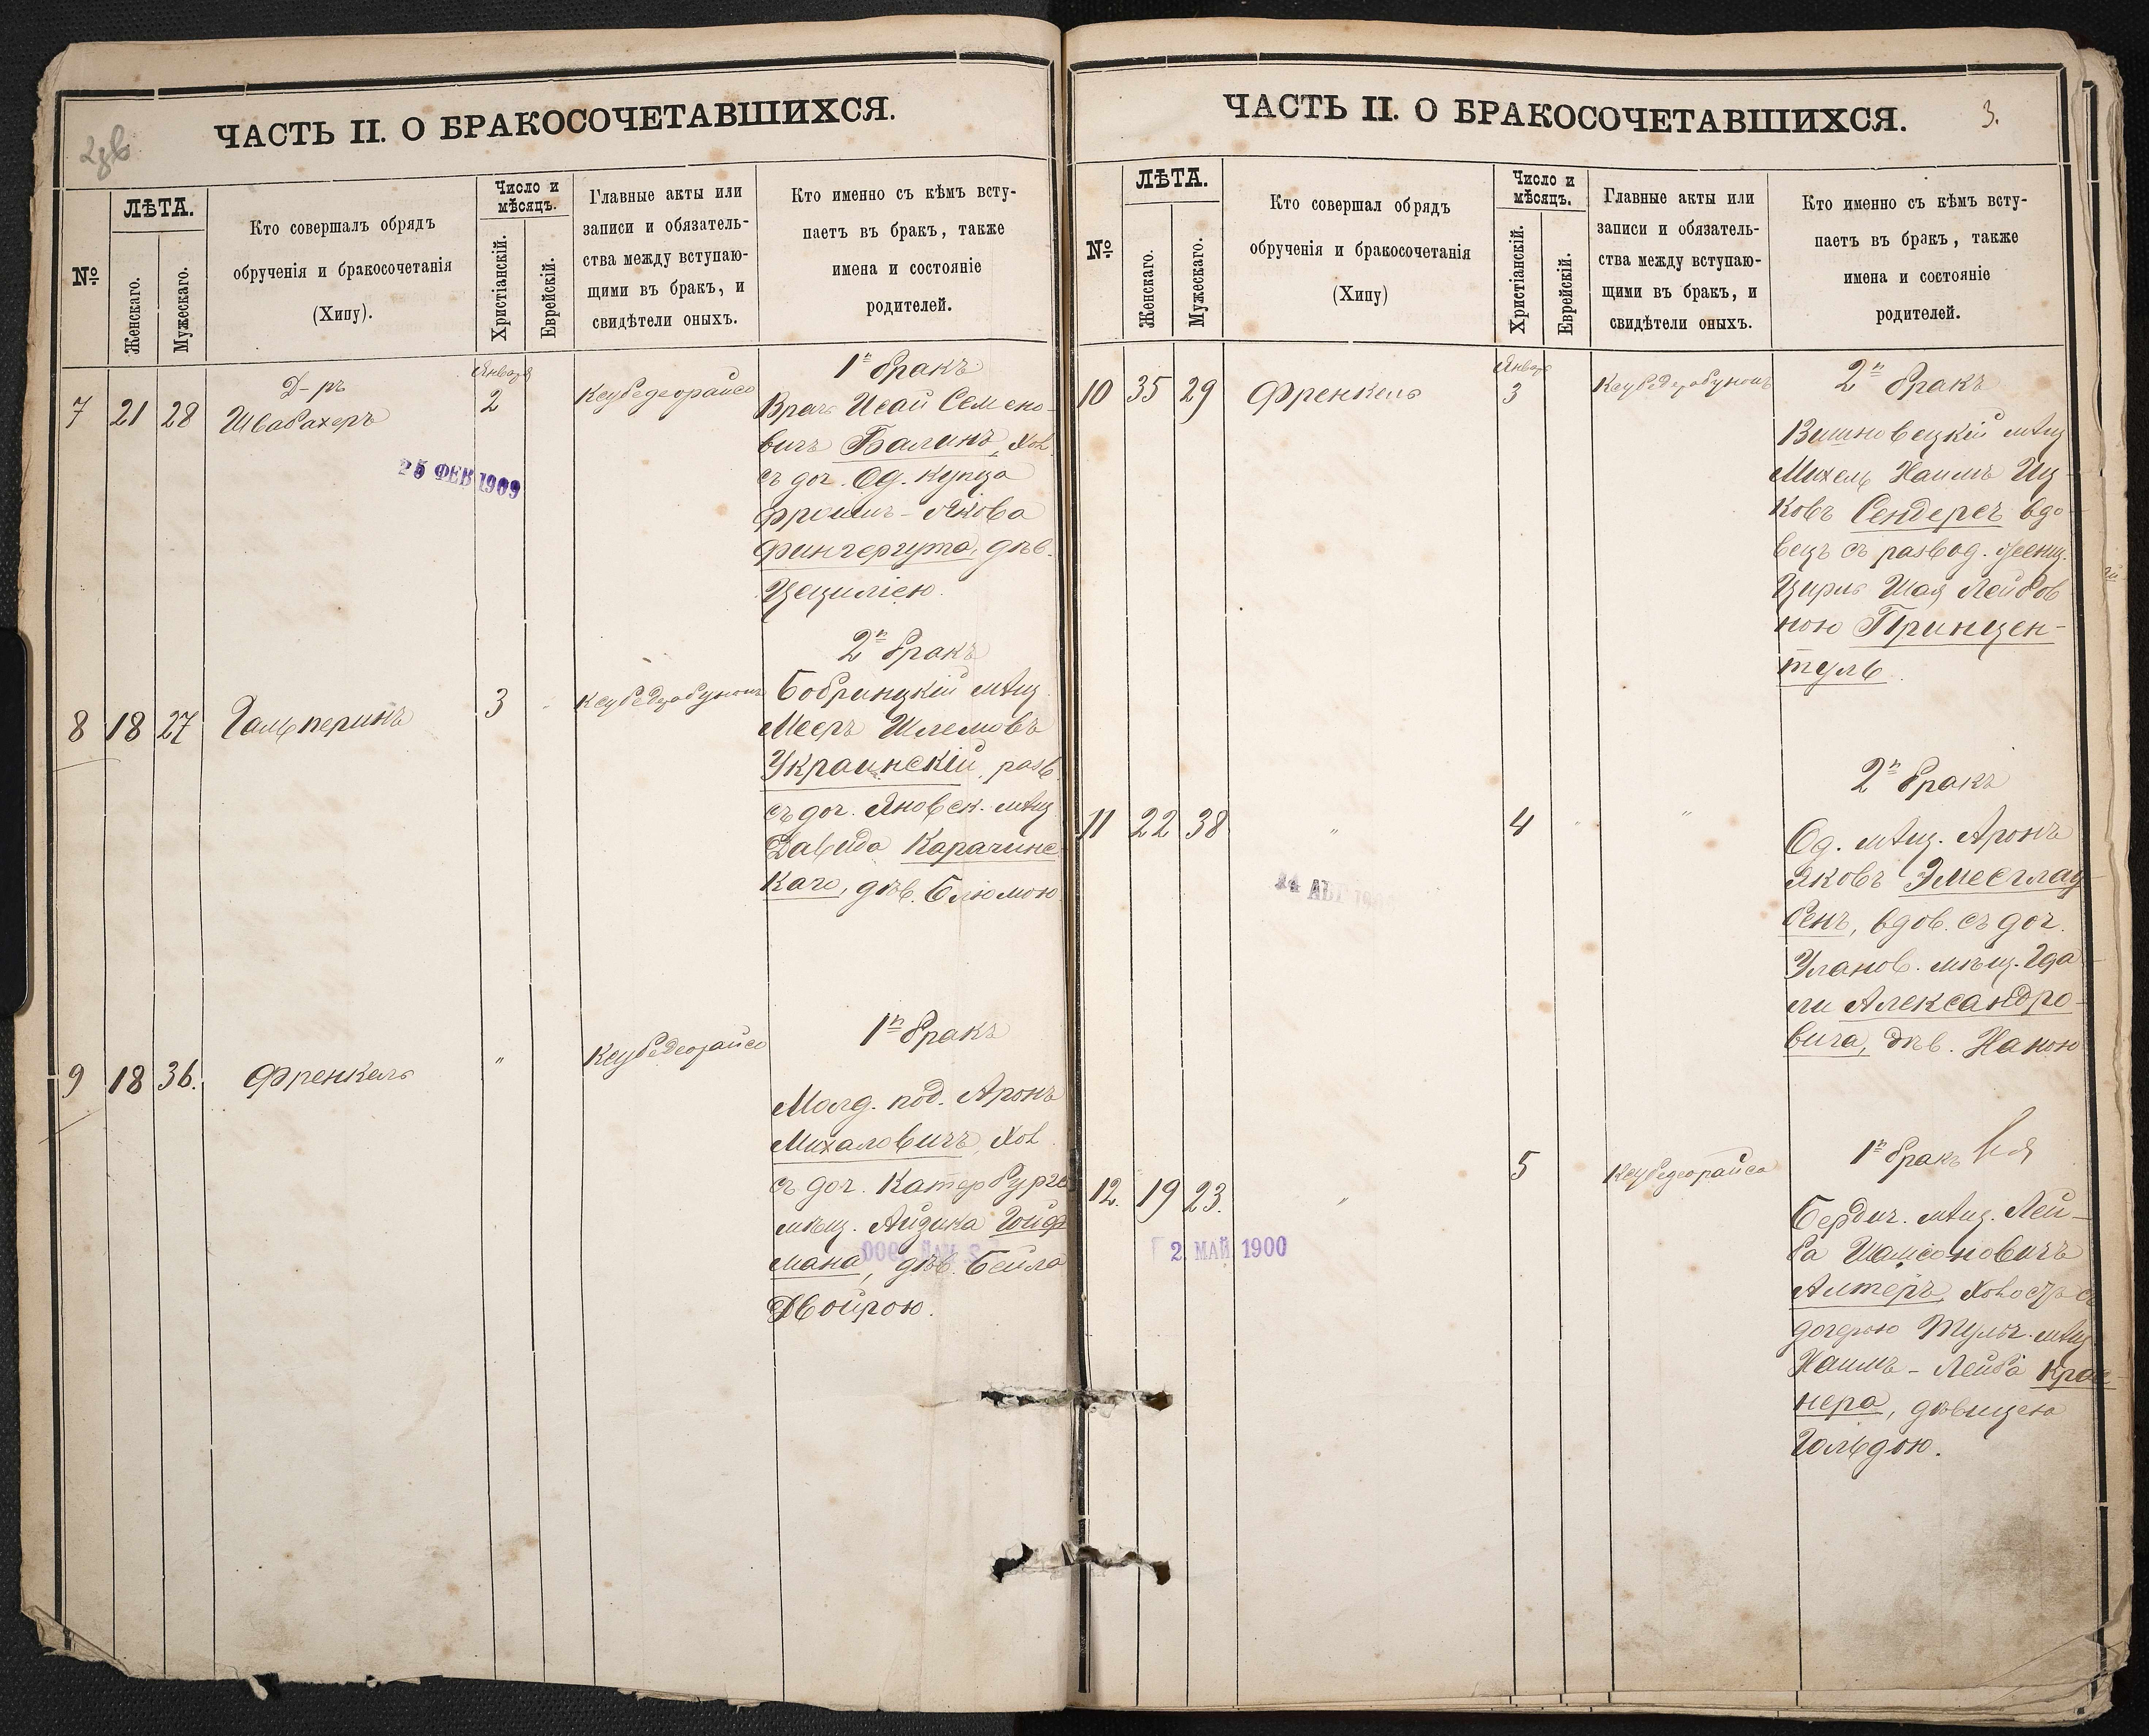 2зв
ЧАСТЬ II. О БРАКОСОЧЕТАВШИХСЯ.
№
ЛѢТА.
Женскаго.
Мужескаго.
Кто совершалъ обрядъ
обрученія и бракосочетанія
(Хипу).
Число и
мѣсяцъ.
Христіанскій.
Еврейскій.
Главные акты или
записи и обязатель-
ства между вступаю-
щими въ бракъ, и
свидѣтели оныхъ.
Кто именно съ кѣмъ всту-
паетъ въ бракъ, также
имена и состояніе
родителей.
7 21 28
Д-ръ
Швабахеръ
Января
2
Ксубедеорайсо
1й бракъ
Врачъ Исай Семено-
вичъ Балинъ, хол.
съ доч. Од. купца
Фроимъ-Якова
Фингергута, дѣв.
Цецилією.
25 ФЕВ 1909
8 18 27
Гальперинъ
3
2й бракъ
Бобринцкій мѣщ.
Мееръ Шлемовъ
Украинскій, разв.
съ доч. Яновск. мѣщ.
Давида Карачинс-
каго, дѣв. Блюмою
9 18 36.
Френкель
"
Ксубедеорайсо
1й бракъ
Молд. под. Аронъ
Михаловичъ, хол.
съ доч. Катербургс
мѣщ. Айзика Гойф
мана, дѣв. Бейла
Двойрою.
ЧАСТЬ II. О БРАКОСОЧЕТАВШИХСЯ.
3.
№
ЛѢТА.
Женскаго.
Мужескаго.
Кто совершал обрядъ
обрученія и бракосочетанія
(Хипу)
Число и
мѣсяцъ.
Христіанскій.
Еврейскій.
Главные акты или
записи и обязатель-
ства между вступаю-
щими въ бракъ, и
свидѣтели оныхъ.
Кто именно съ кѣмъ всту-
паетъ въ бракъ, также
имена и состояніе
родителей.
10 35 29
Френкель
Января
3
2й бракъ
Вишновецкій мѣщ
Михель Хаимъ Иц-
ковъ Сендеръ вдо-
вецъ съ развод.
Цирль Шая Лейбов
ною Принцен-
туль.
11 22 38
"
4
"
"
2й бракъ
Од. мѣщ. Аронъ
Яковъ Эмесглау-
бенъ, вдов. съ доч.
Уланов. мѣщ. Гда-
ли Александро-
вича, дѣв. Ханою
24 АВГ
12. 19 23.
"
5
Ксубедеорайсо
1й бракъ
Бердич. мѣщ. Лей-
ба Шамсоновичъ
Алтеръ, холостъ съ
дочерью Тульч. мѣщ
Хаимъ-Лейба Крас-
нера, дѣвицею
Гольдою.
2 МАЙ 1900